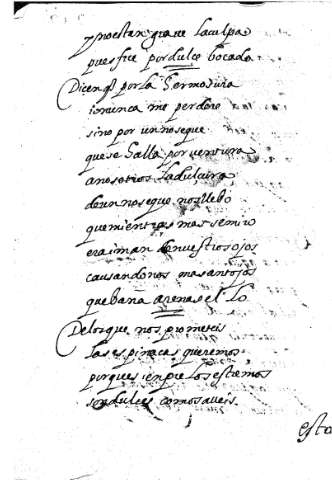 y no es tan graue la culpa
pues fue por dulce bocado
Dicen q̃ por la hermosura
io nunca me perdere
sino por un no se que
que se halla por uentura
a nosotros la dulçura
de un no se que nos lleuo
que mientras mas se miro
era iman de nuestros ojos
causandonos mas antojos
que baña arenas el
De los que nos prometeis
las espinacas queremos
porque si en pie los estemos
son dulces como saueis.
esta